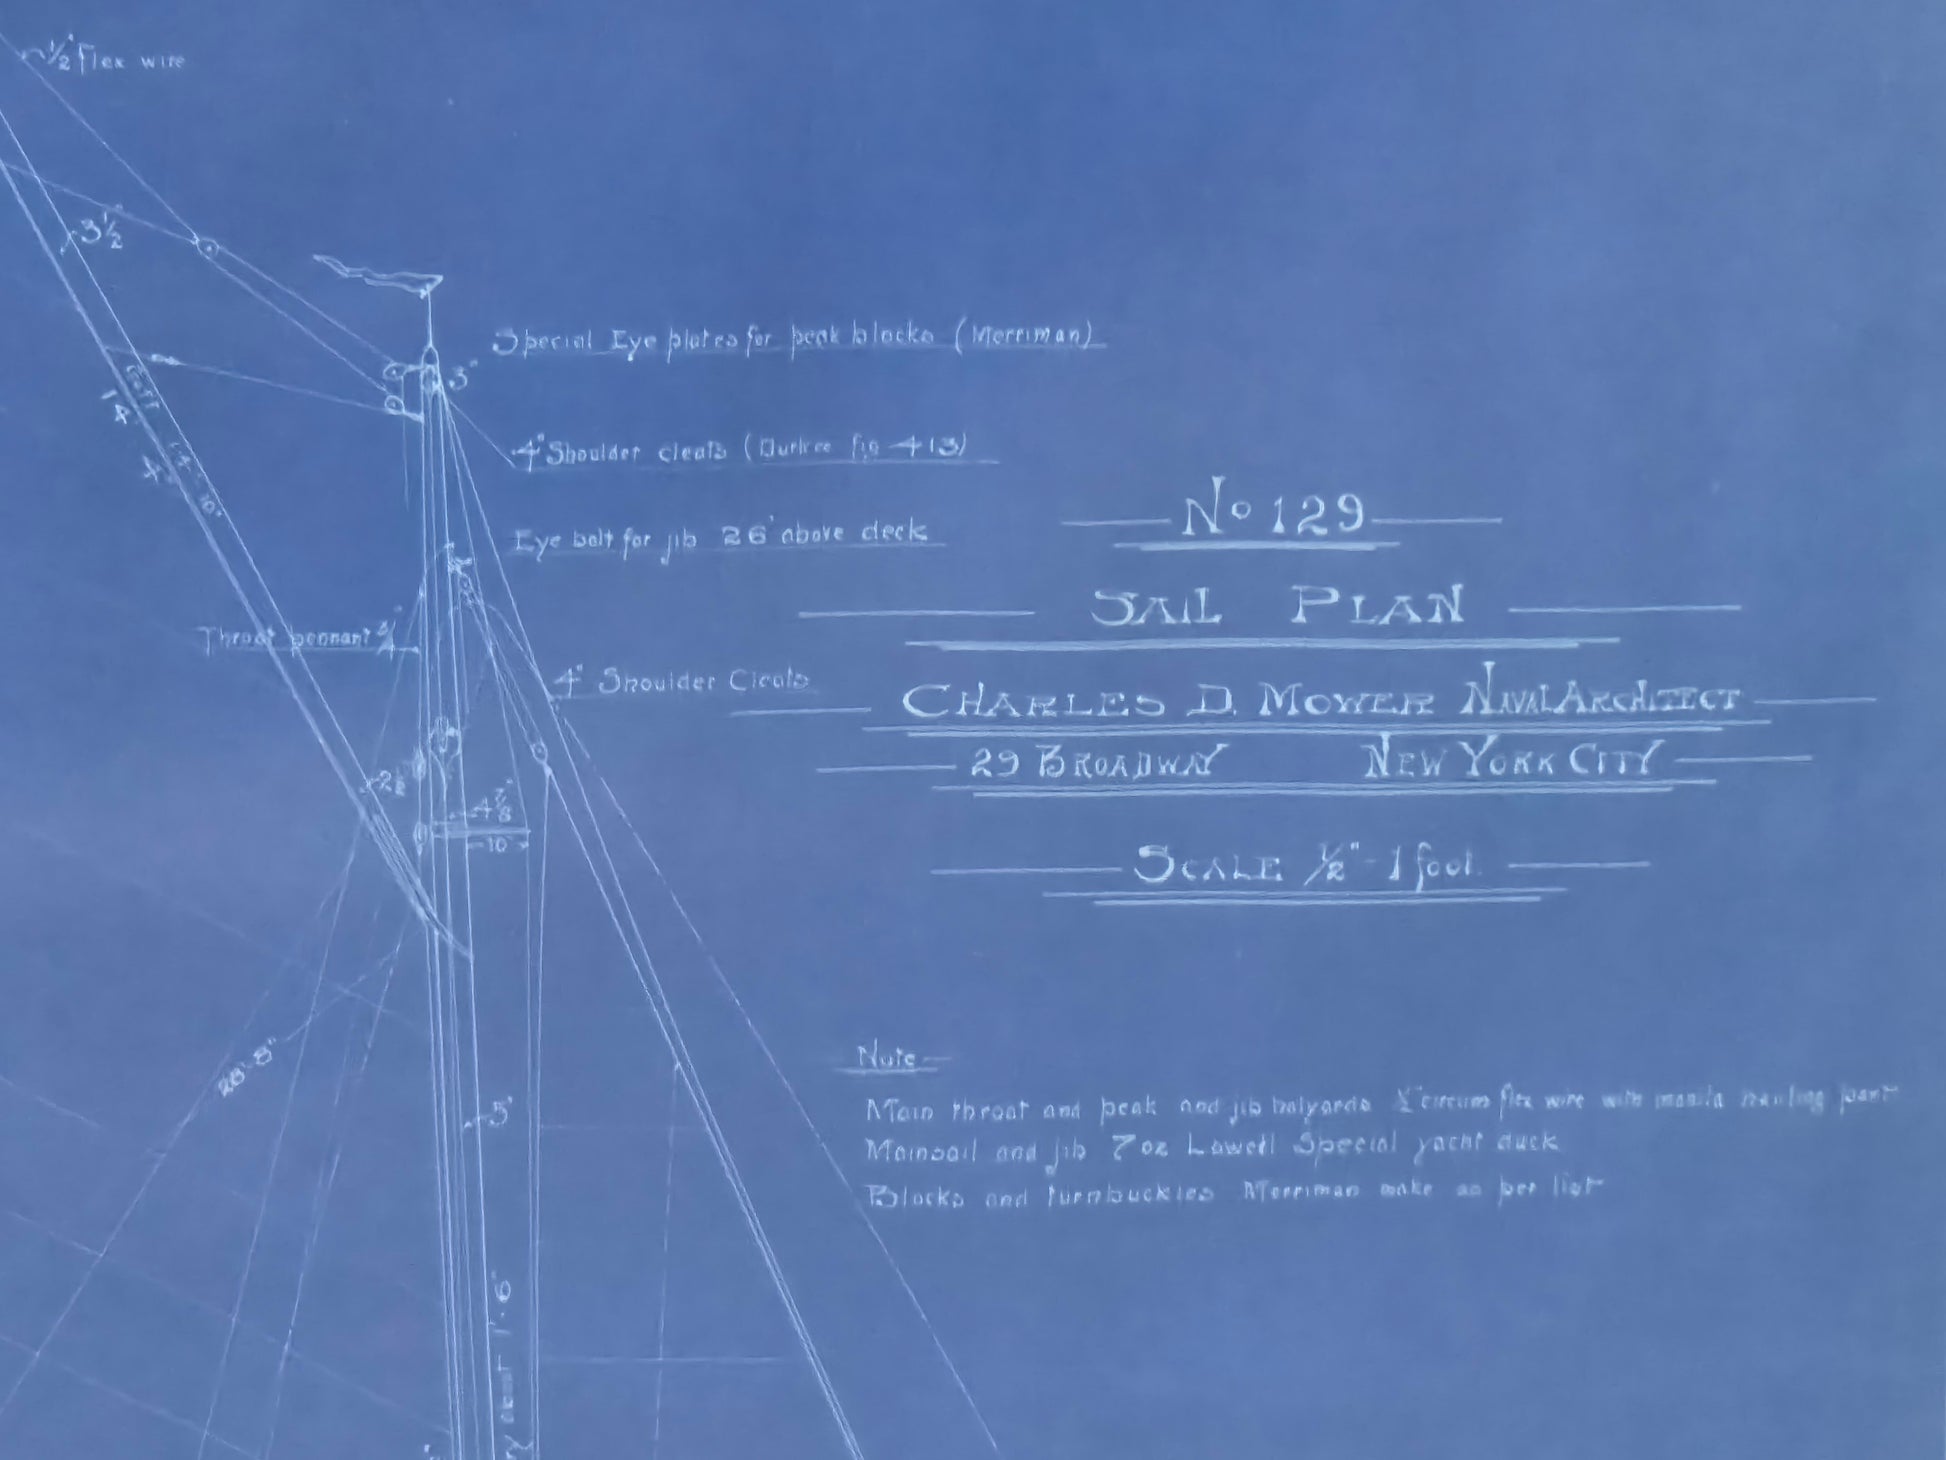 1/2" Flex wire
3 1/2"
Special Eye plates for peak blocks (Merriman)
3"
4" Shoulder cleats (Durkee fig 413)
Eye bolt for jib 26' above deck
Throat pennant 3/4"
4" Shoulder Cleats
2 1/2"
4 7/8"
10"
No 129
SAIL PLAN
CHARLES D. MOWER NAVAL ARCHITECT
29 BROADWAY NEW YORK CITY
SCALE 1/2" - 1 foot.
28'-8"
5"
about 1'-6"
Note
Main throat and peak and jib halyards circum flex wire with manila hauling part
Mainsail and jib 7 oz Lowell Special yacht duck
Blocks and turnbuckles Merriman make as per list